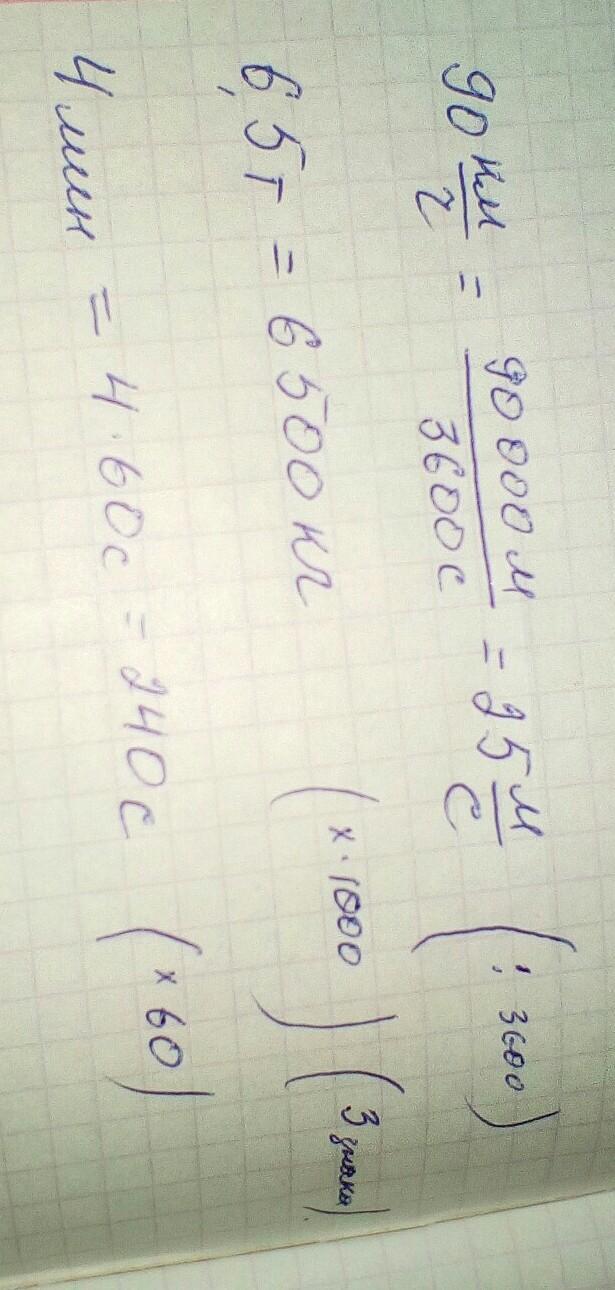 90 км/ч = 90 000 м/3600 с = 25 м/с (: 3600)
6,5 т = 6500 кг (х · 1000) (3 знака)
4 мин = 4 · 60 с = 240 с (х 60)